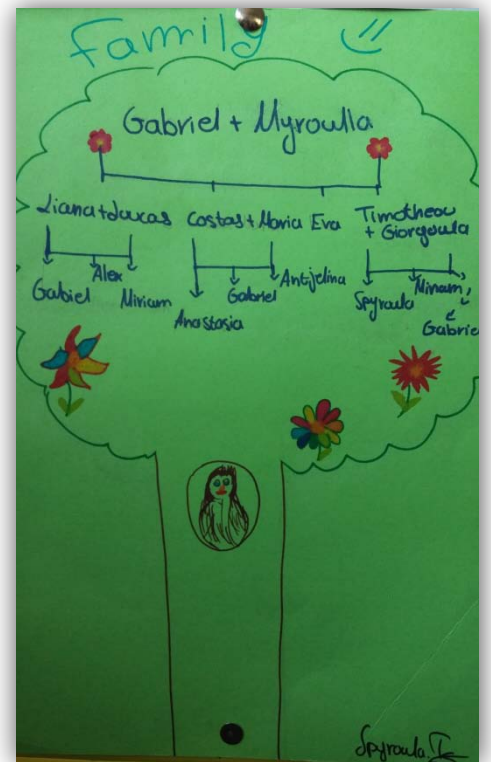 Family
Gabriel + Myroulla
Liana + Luxas Costas + Maria Eva Timotheou
+ Giorgoula
Gabiel Alex Miriam Anastasia Gabriel Antjelina Spyroula Miriam,
Gabriel
Spyroula T